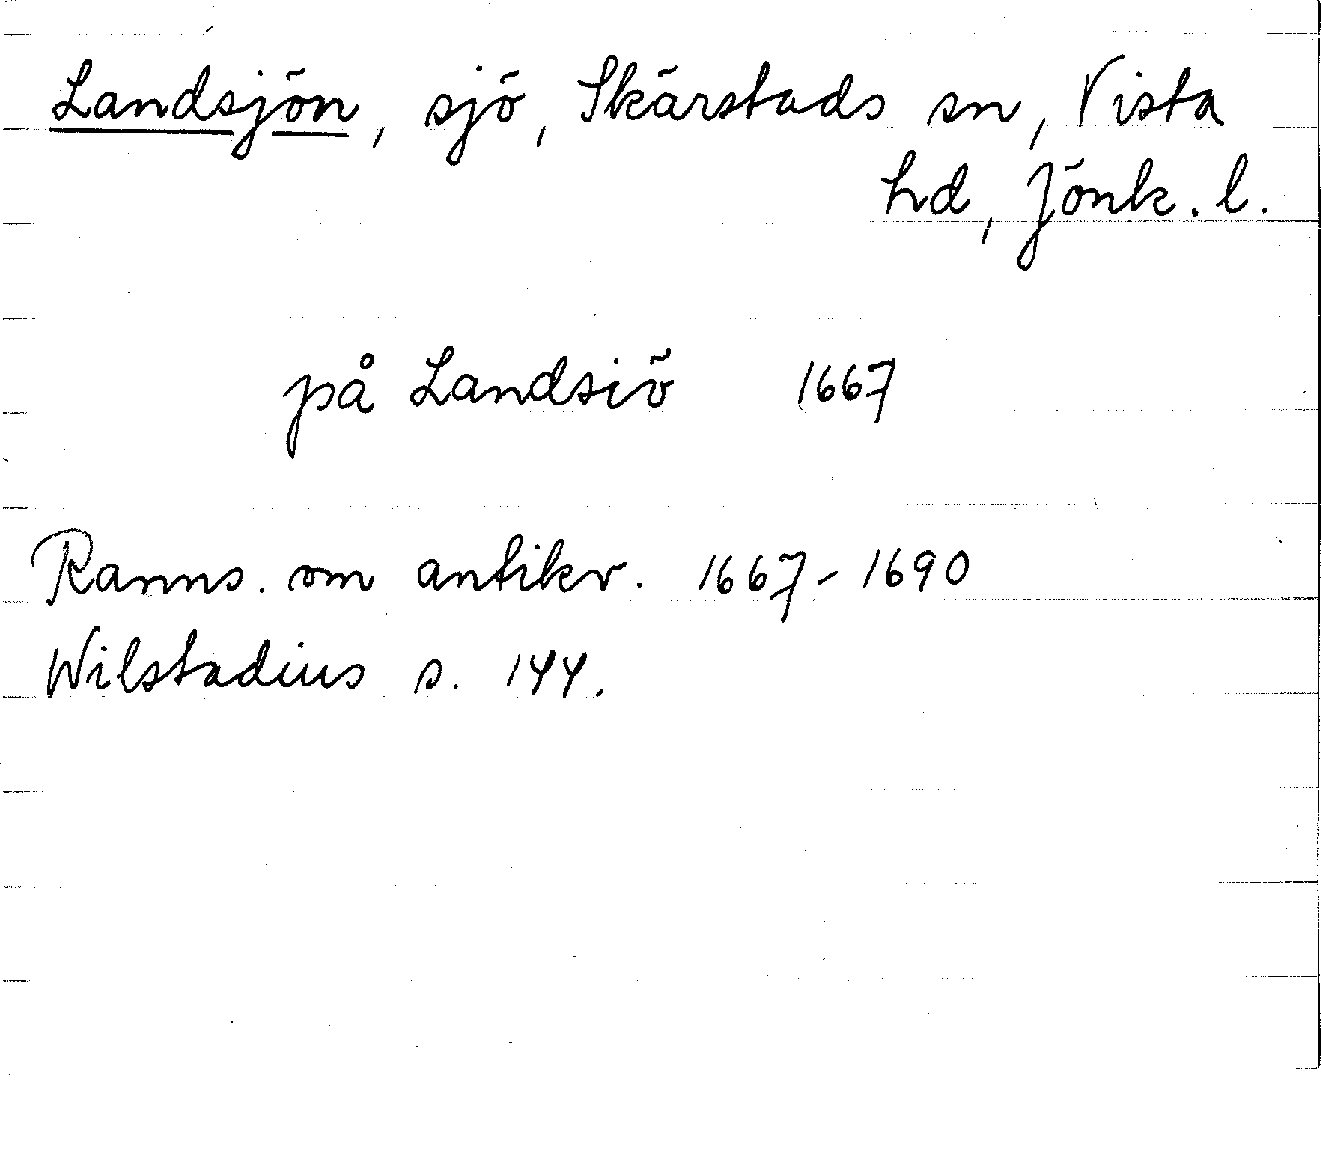 Landsjön, sjö, Skärstads sn, Vista
hd, Jönk. l.
på Landsiö 1667
Ranns. om antikv. 1667-1690
Wilstadius s. 144.